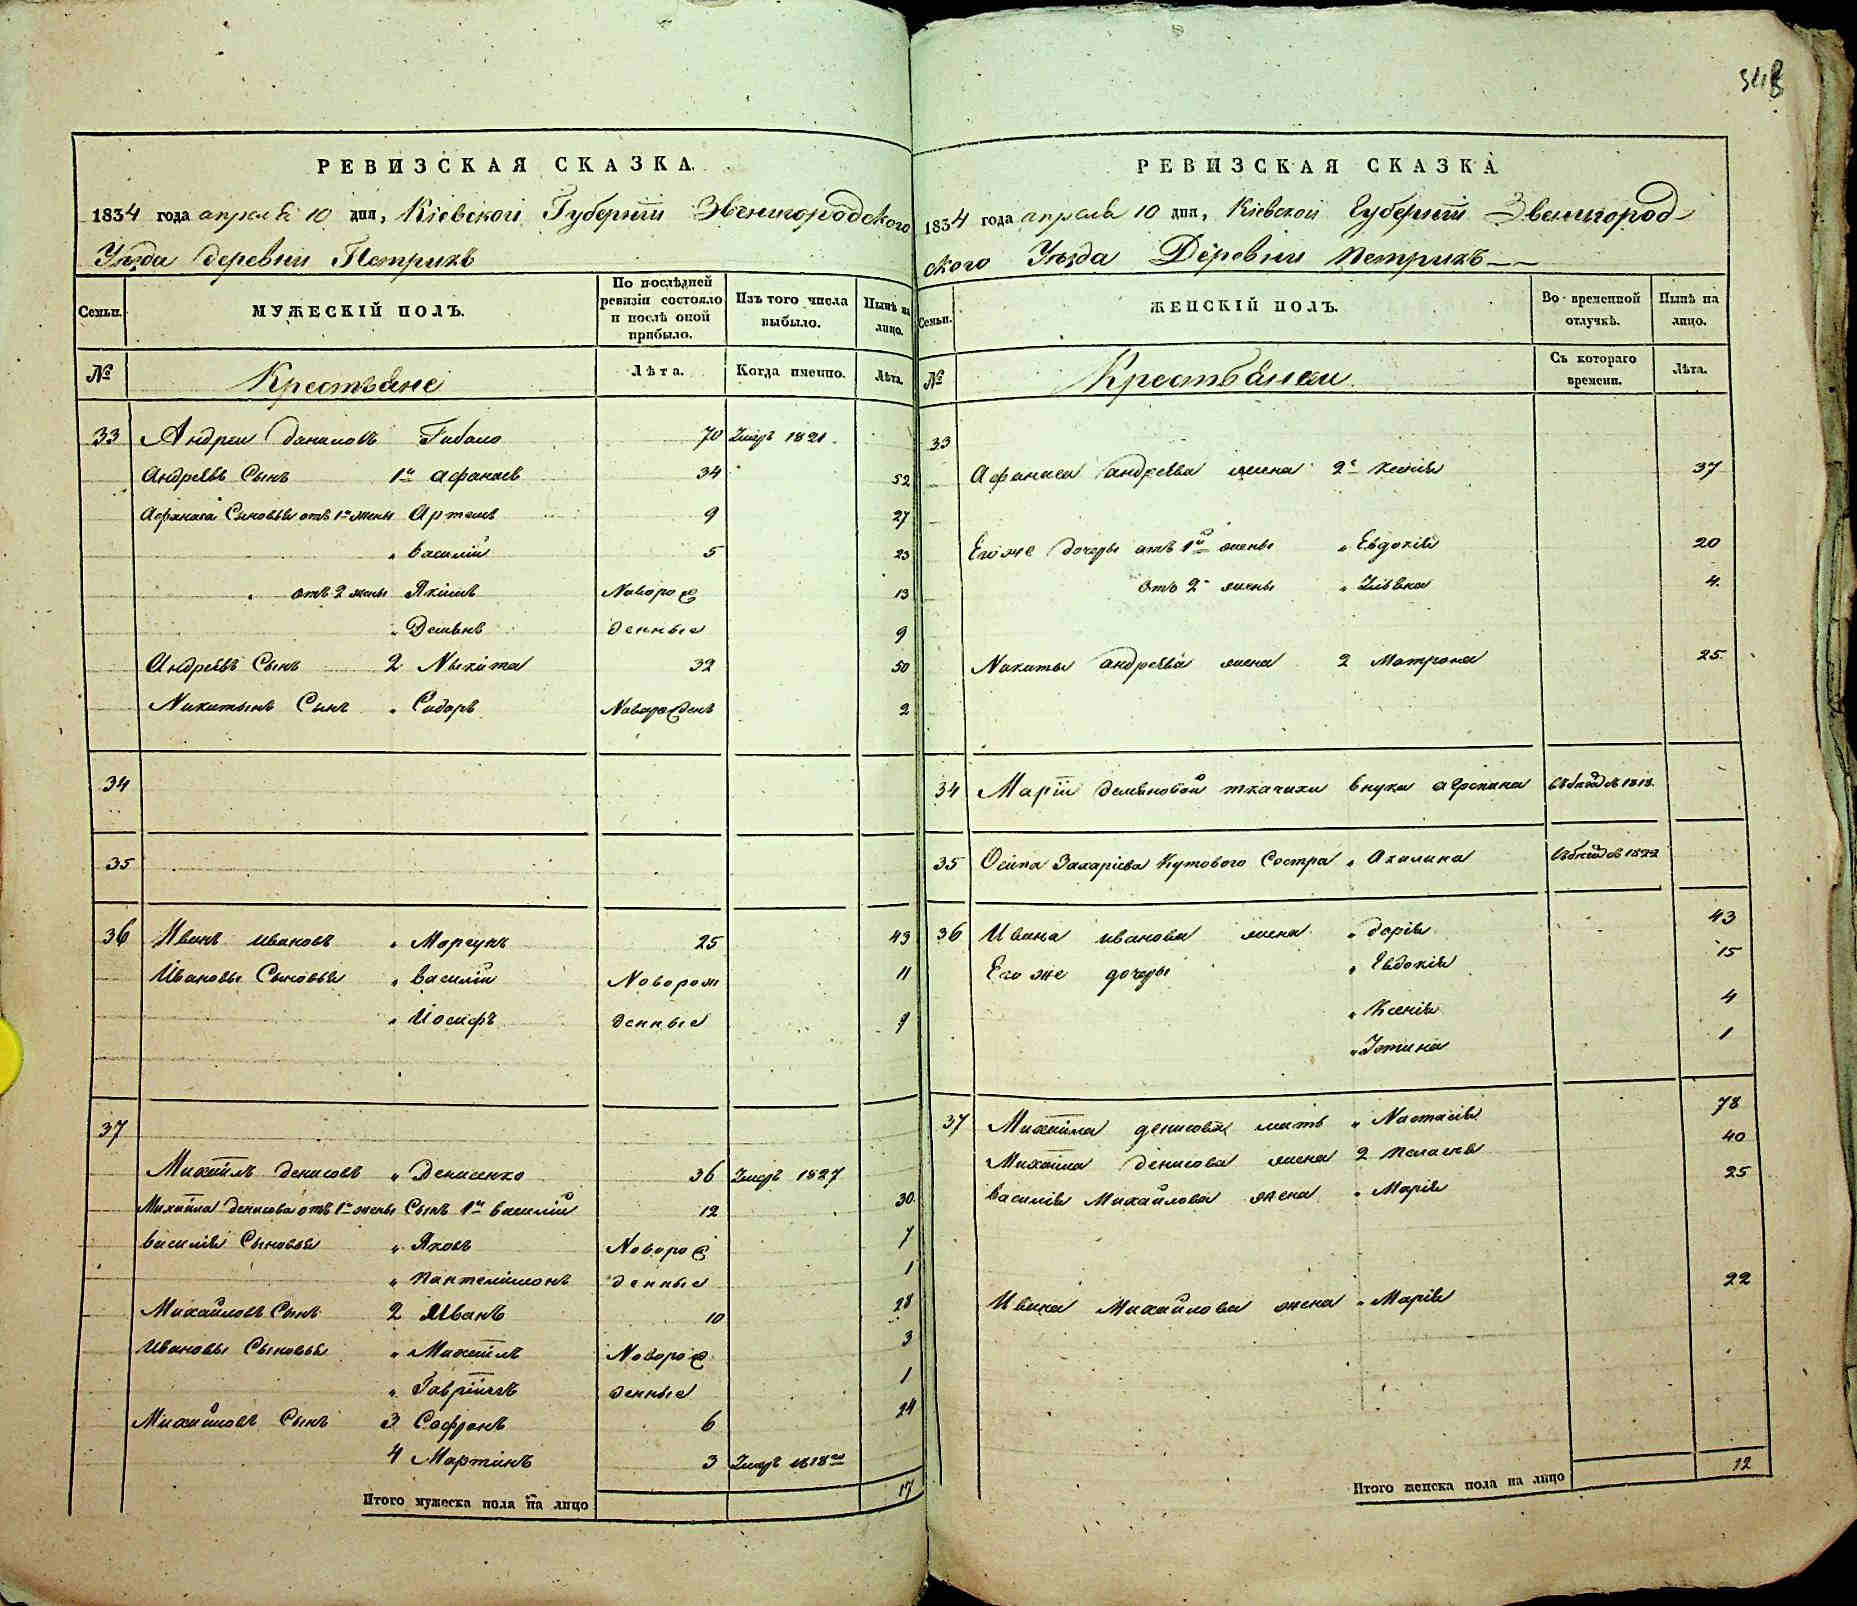 348
РЕВИЗСКАЯ СКАЗКА.
1834 года апреля 10 дня, Кіевской Губерніи Звенигородского
Уѣзда деревни Петрикъ
Семьи.
МУЖЕСКІЙ ПОЛЪ.
По послѣдней ревизіи состояло и послѣ оной прибыло.
Изъ того числа выбыло.
Нынѣ на лицо.
№
Крестьяне
Лѣта.
Когда именно.
Лѣта.
33 Андреи даниловъ 70 Умеръ 1821
Андреевъ Сынъ 1й Афанаев 34 52
Афанаса Сыновья отъ 1й жены Артемъ 9 27
" василій 5 23
" отъ 2 жены Якимъ Новорож 13
" Демянъ денные 9
Андреевъ Сынъ 2 Никита 32 50
Никитынъ Сынъ " Сидоръ Новорожденъ 2
34
35
36 Иванъ ивановъ " Моргунъ 25 43
Ивановы Сыновья " василій Новорож 11
" Иосифъ денные 9
37
Михаилъ денисовъ " Денисенко 36 Умеръ 1827
Михаила денисова отъ 1й жены Сынъ 1й василій 12 30
василія Сыновья " Яковъ Новорож 7
" пантелимонъ денные 1
Михайловъ Сынъ 2 Иванъ 10 28
Ивановы Сыновья " Михаилъ Новорож 3
" Гавріилъ денные 1
Михайловъ Сынъ 3 Софронъ 6 24
4 Мартинъ 3 Умеръ 1818
Итого мужеска пола на лицо 17
РЕВИЗСКАЯ СКАЗКА
1834 года апреля 10 дня, Кіевской Губерніи Звенигород-
ского Уѣзда Деревни петрикъ
Семьи.
ЖЕНСКІЙ ПОЛЪ.
Во временной отлучкѣ.
Нынѣ на лицо.
№
Съ котораго времени.
Лѣта.
33
Афанаса андреева жена 2я 37
Его же дочеры отъ 1й жены " Евдокія 20
отъ 2й жены " 4
Никиты андреева жена 2 Матрона 25
34 Маріи демяновой ткачихи внука 1818
35 Осипа Захаріева Кутового Состра " Акилина 1822
36 Ивана иванова жена " дарія 43
Его же дочеры " Евдокія 15
" Ксенія 4
" 1
37 Михаила денисова мать " Настасія 78
Михаила денисова жена 2 40
василія Михайлова жена " Марія 25
Ивана Михайлова жена " Марія 22
Итого женска пола на лицо 12